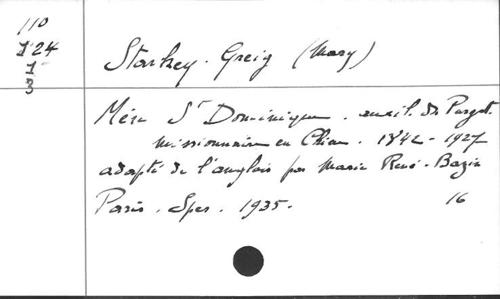 110
J 24
J
3
Starkey-Greig (Mary)
Mère St Dominique. auxil. du Purgat.
missionnaire en Chine. 1842-1927
adapté de l'anglais par Marie René-Bazin
Paris. Spes. 1935. 16